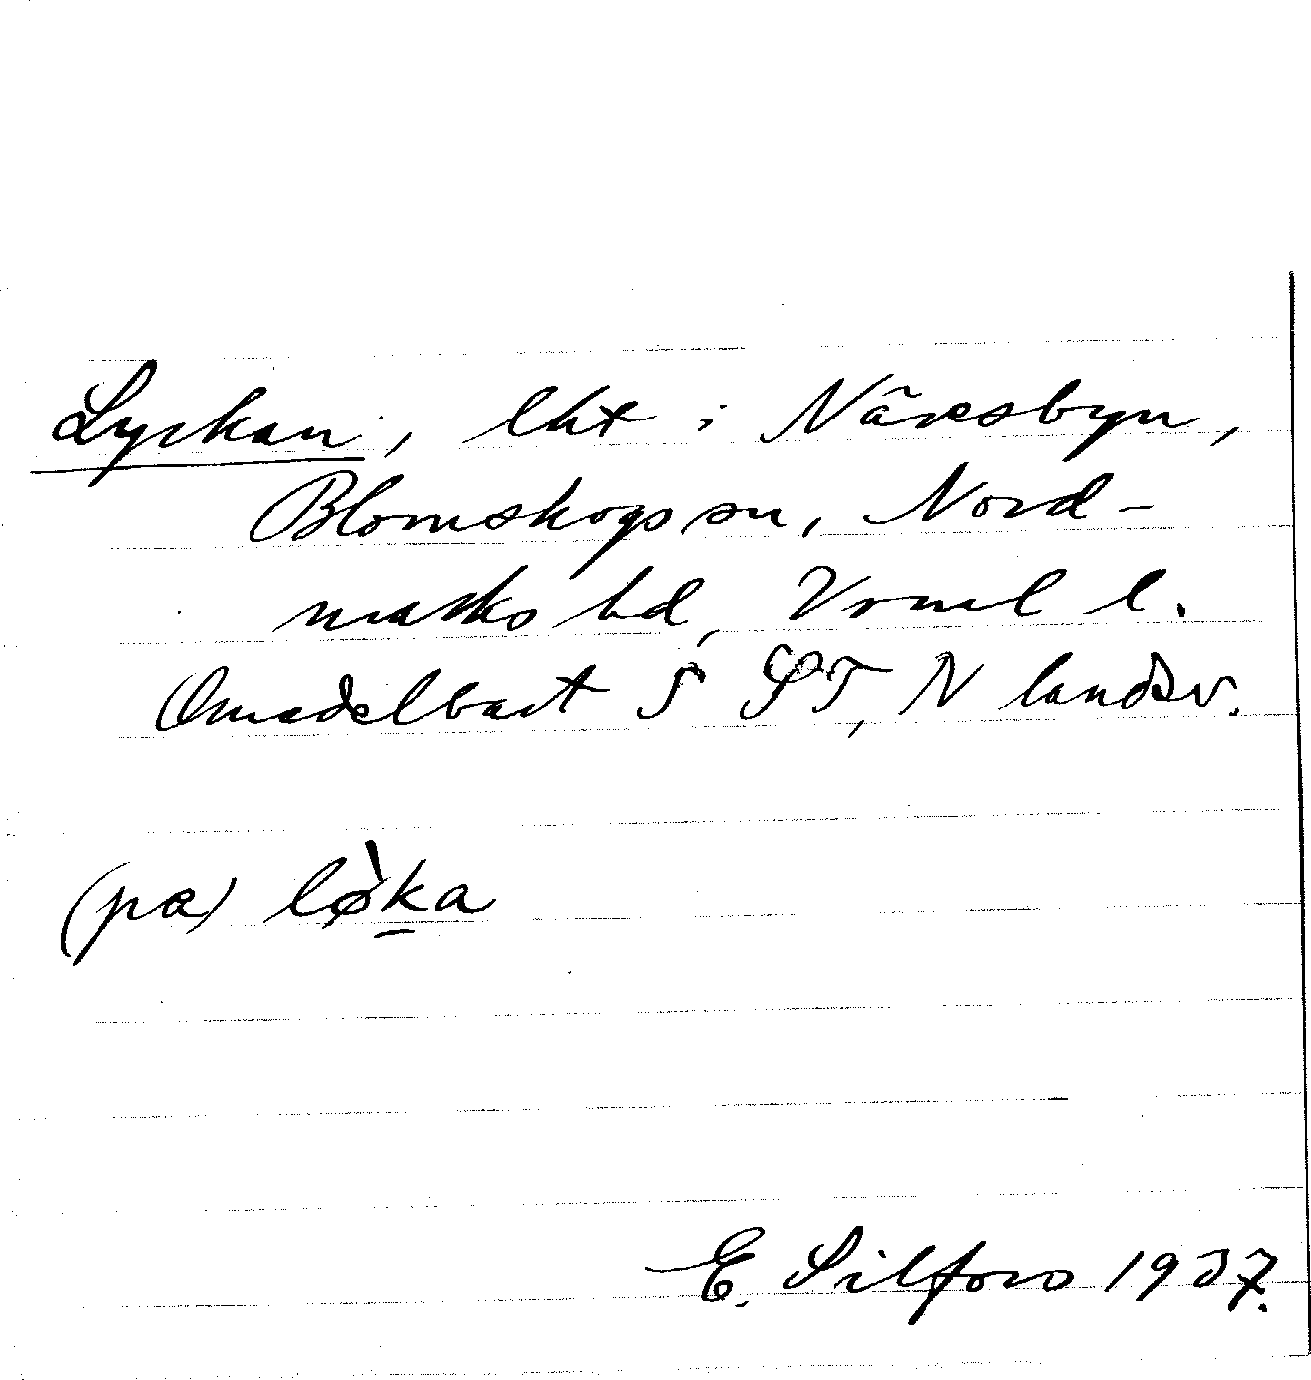 Lyckan, lht i Näresbyn,
Blomskogs sn, Nord-
marks hd, Vrml l.
Omedelbart S ST, N landsv.
(pa) lø̀ka
E. Silfors 1937.